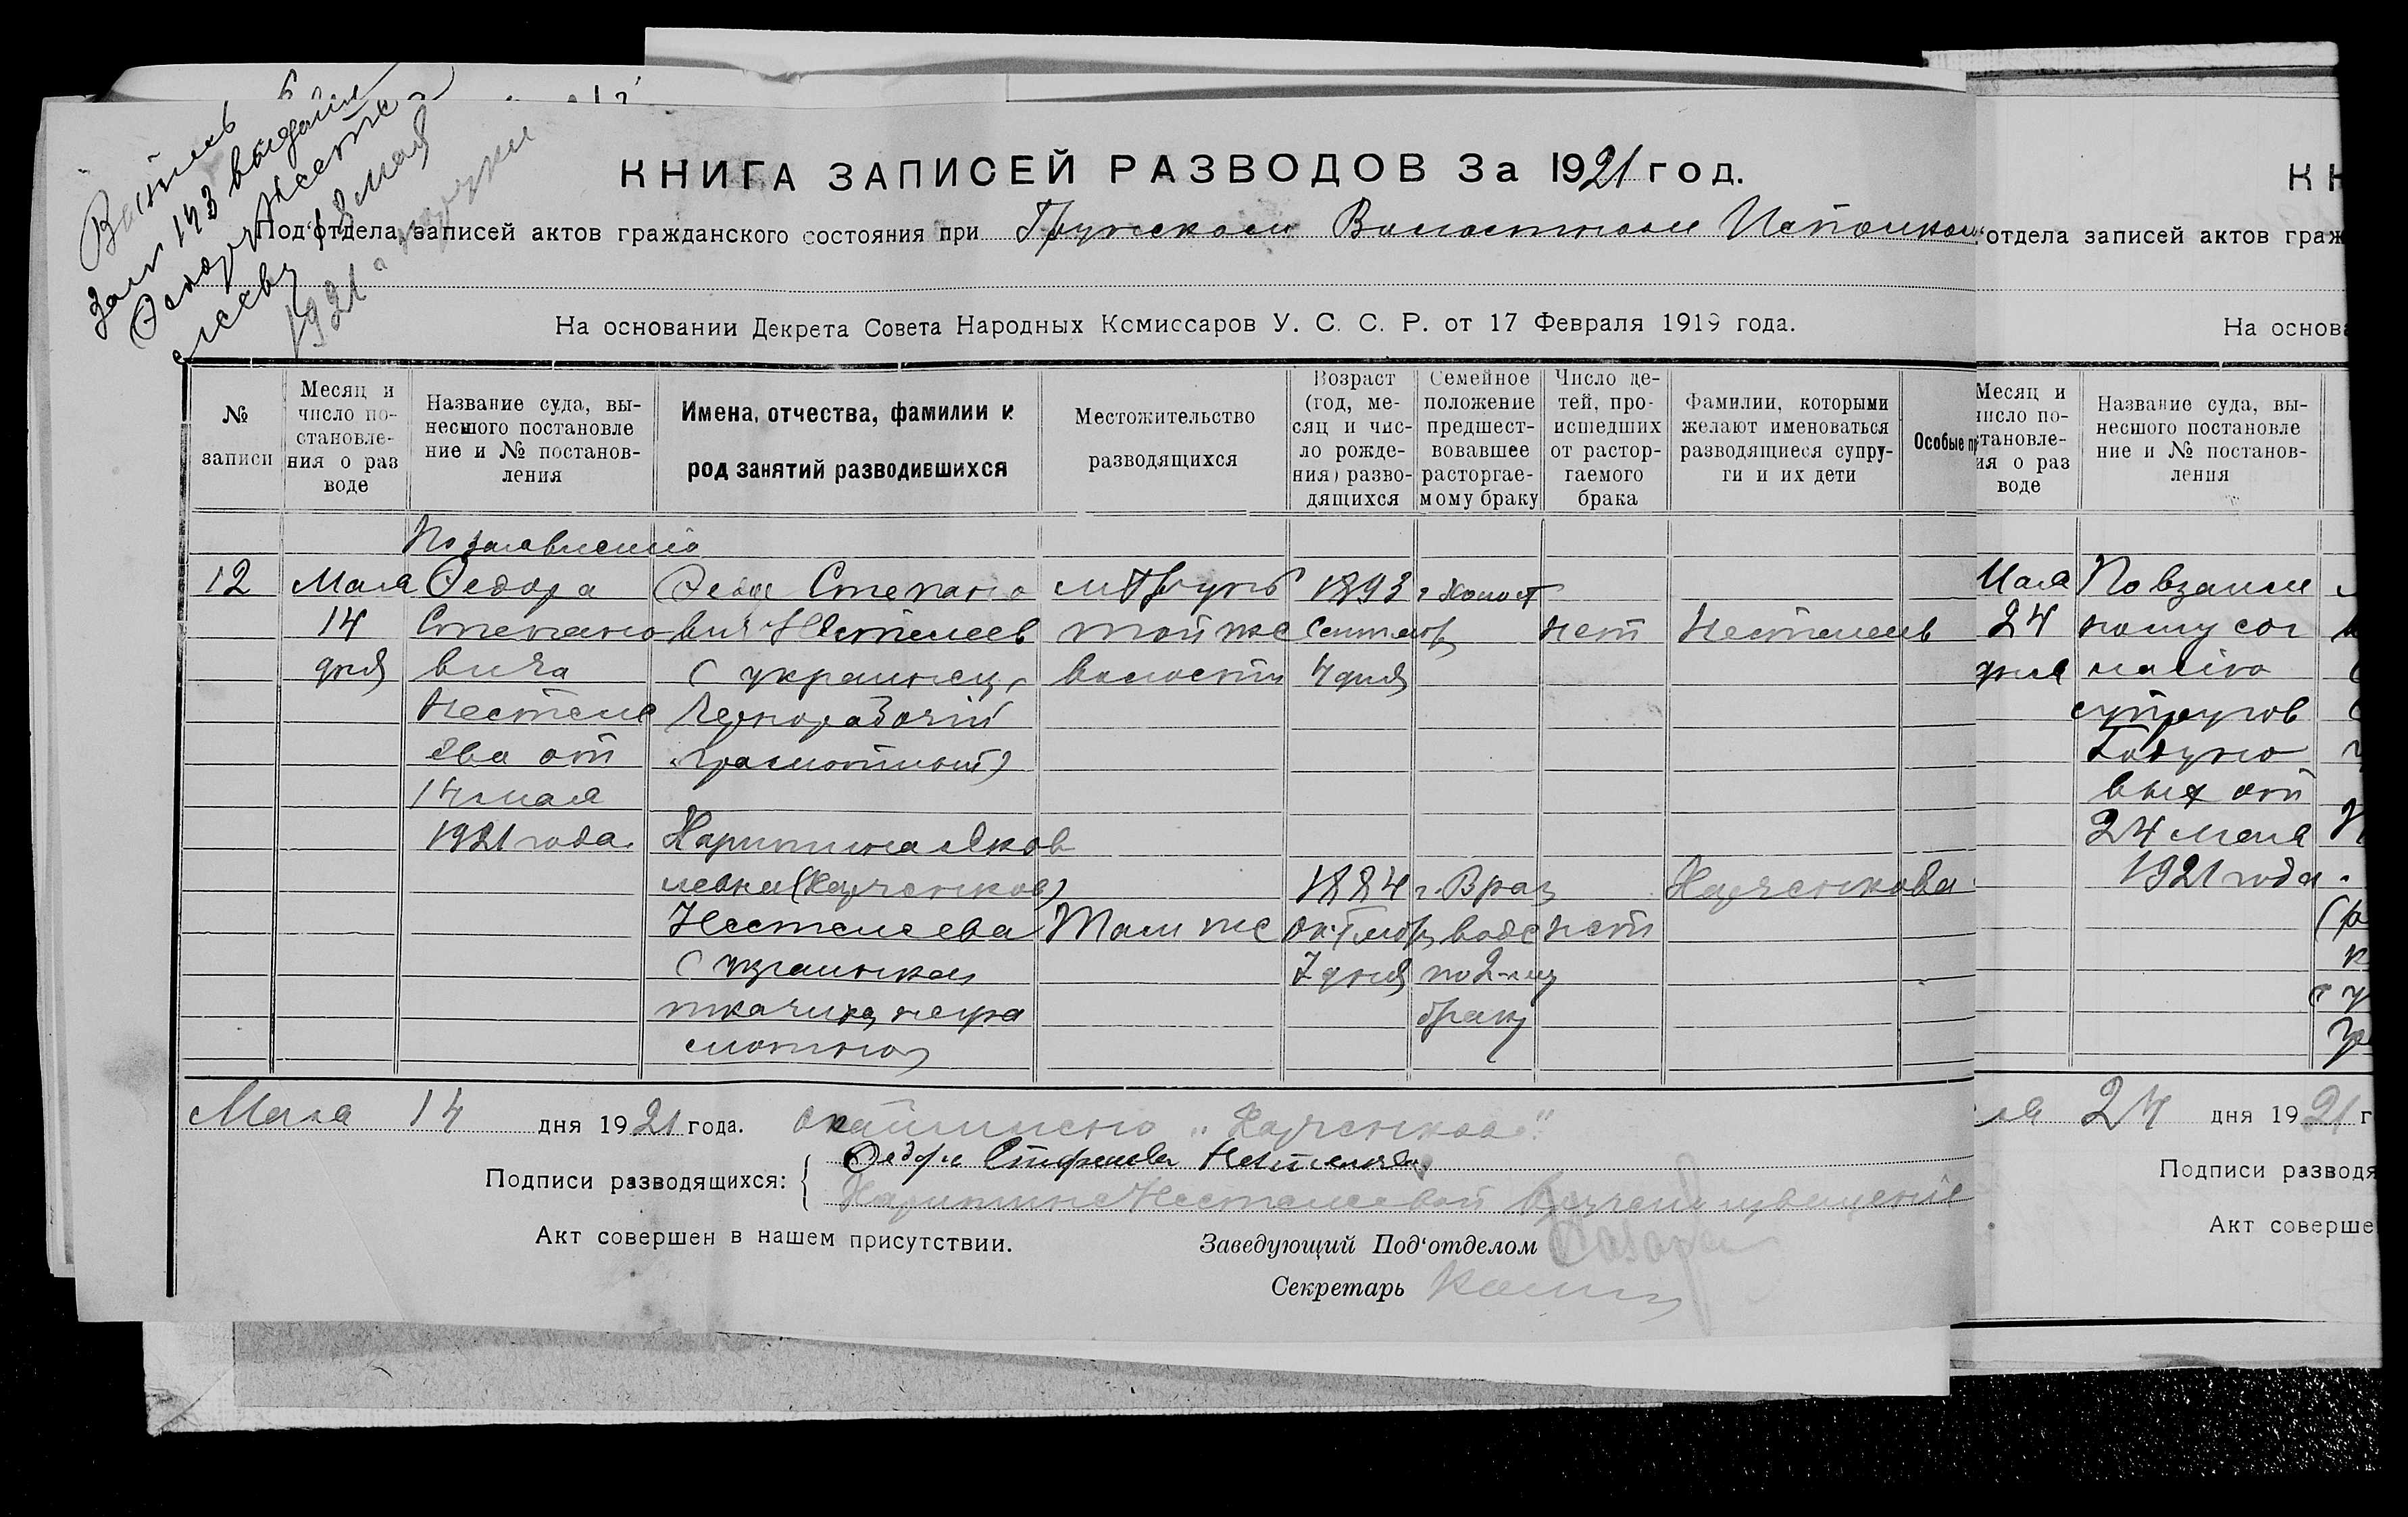 Выпись
за № 143 выдана
Федору Несте
лееву 18 мая
1921 г.
КНИГА ЗАПИСЕЙ РАЗВОДОВ За 1921 год.
Под‘отдела записей актов гражданского состояния при Грунском Волостном Исполком
На основании Декрета Совета Народных Комиссаров У. С. С. Р. от 17 Февраля 1919 года.
№ записи
Месяц и число по-
становле-
ния о раз
воде
Название суда, вы-
несшого постановле
ние и № постанов-
ления
Имена, отчества, фамилии и
род занятий разводившихся
Местожительство
разводящихся
Возраст
(год, ме-
сяц и чис-
ло рожде-
ния) разво-
дящихся
Семейное
положение
предшест-
вовавшее
расторгае-
мому браку
Число де-
тей, про-
исшедших
от растор-
гаемого
брака
Фамилии, которыми
желают именоваться
разводящиеся супру-
ги и их дети
Особые пр
12
Мая
14
дня
По заявлению
Федора
Степано
вича
Нестеле
ева от
14 мая
1921 года.
Федор Степано
вич Нестелеев
(украинец,
чернорабочий
грамотный)
м. Грунь
той же
волости
1893 г.
Сентябр
4 дня
Холост
нет
Нестелеев
Харитина Яков
левна (Харченкова)
Нестелеева
(украинка,
ткачиха, негра
мотная)
Там же
1884 г.
Октябр
7 дня
В раз
воде
по 2-му
браку
нет
Харченкова
Мая 14 дня 1921 года.
Подписи разводящихся:
Федор Стефанов Нестелеев
Харитине Нестелеевой вручено извещение
Акт совершен в нашем присутствии.
Заведующий Под‘отделом
Секретарь
КН
отдела записей актов граж
На основа
Месяц и
число по-
становле-
ия о раз
воде
Название суда, вы-
несшого постановле
ние и № постанов-
ления
Мая
24
дня
По взаим
ному сог
ласию
супругов
Годуно
вых от
24 мая
1921 года
24 дня 1921 г
Подписи разводя
Акт соверше